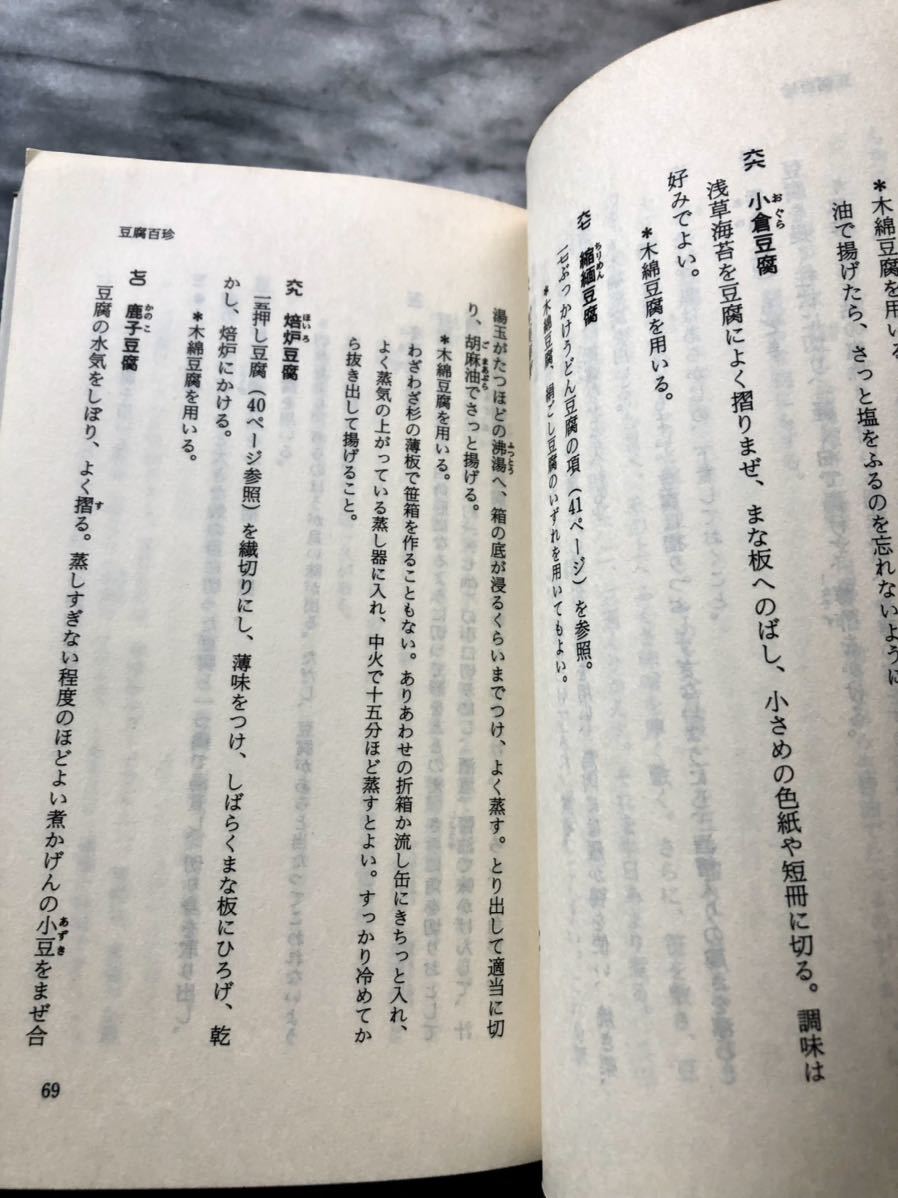 ＊木綿豆腐を用いる。
油で揚げたら、さっと塩をふるのを忘れないように
六六 小倉豆腐
おぐら
浅草海苔を豆腐によく摺りまぜ、まな板へのばし、小さめの色紙や短冊に切る。調味は
好みでよい。
＊木綿豆腐を用いる。
六七 縮緬豆腐
ちりめん
一七ぶっかけうどん豆腐の項（41ページ）を参照。
＊木綿豆腐、絹ごし豆腐のいずれを用いてもよい。
豆腐百珍
湯玉がたつほどの沸湯へ、箱の底が浸るくらいまでつけ、よく蒸す。とり出して適当に切
ふっとう
り、胡麻油でさっと揚げる。
ごまあぶら
＊木綿豆腐を用いる。
わざわざ杉の薄板で笹箱を作ることもない。ありあわせの折箱か流し缶にきちっと入れ、
よく蒸気の上がっている蒸し器に入れ、中火で十五分ほど蒸すとよい。すっかり冷めてか
ら抜き出して揚げること。
六九 焙炉豆腐
ほいろ
一五押し豆腐（40ページ参照）を繊切りにし、薄味をつけ、しばらくまな板にひろげ、乾
かし、焙炉にかける。
＊木綿豆腐を用いる。
七〇 鹿子豆腐
かのこ
豆腐の水気をしぼり、よく摺る。蒸しすぎない程度のほどよい煮かげんの小豆をまぜ合
す
あずき
69